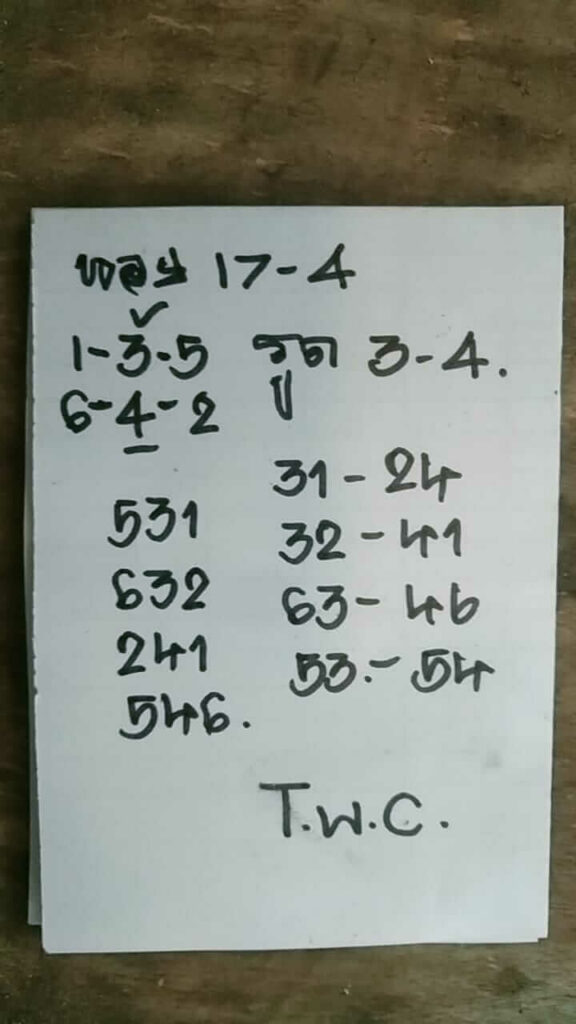 หลอย 17-4
1-3-5 รูด 3-4.
6-4-2
531
632
241
546.
31-24
32-41
63-46
53.-54
T.W.C.